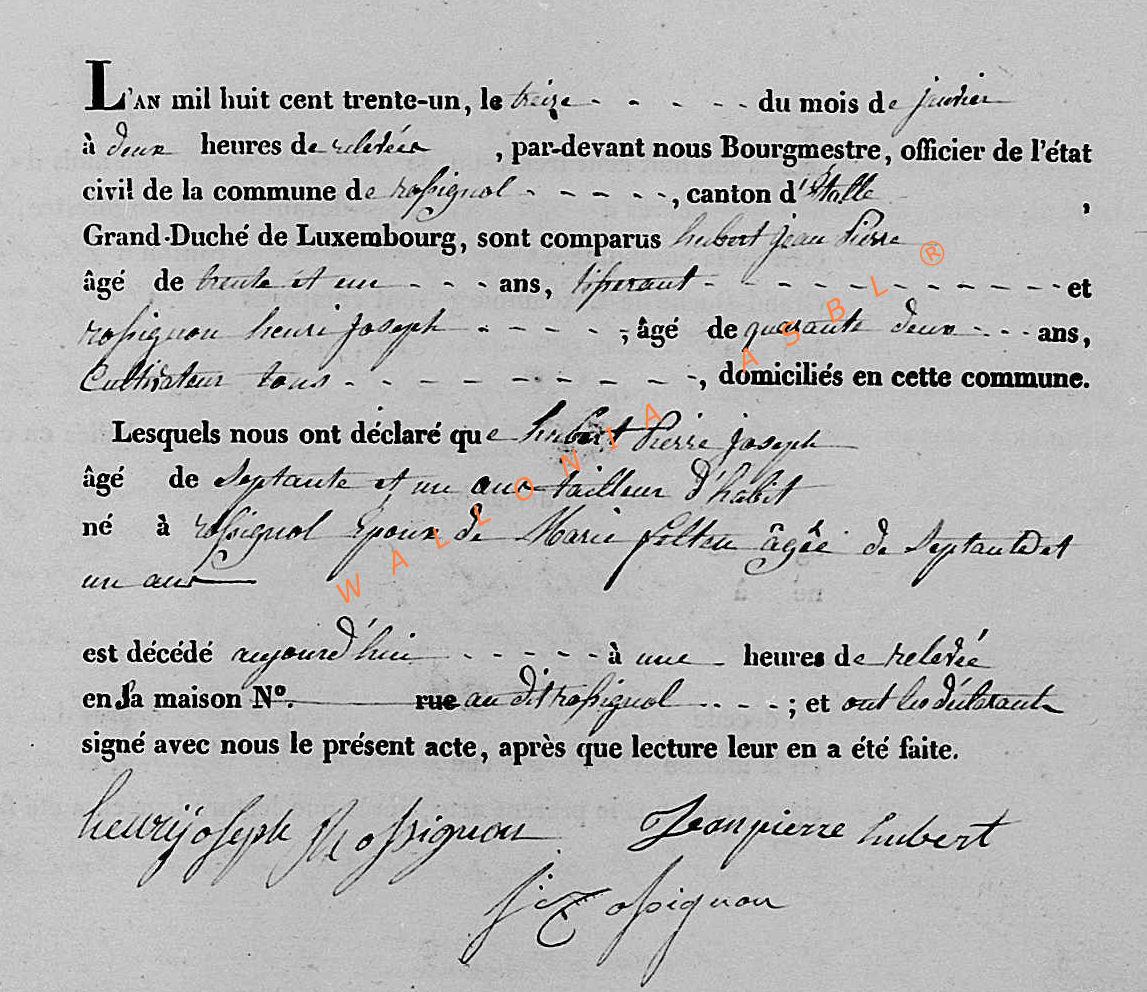 L'AN mil huit cent trente-un, le treize - - - - - du mois de janvier
à deux heures de relevée , par-devant nous Bourgmestre, officier de l'état
civil de la commune de rossignol - - - - -, canton d'Etalle ,
Grand-Duché de Luxembourg, sont comparus hubert jean Pierre
âgé de trente et un - - - ans, tisserant - - - - - - - - - - - - et
rossignon henri joseph - - - - - , âgé de quarante deux - - - ans,
Cultivateur tous - - - - - - - - - -, domiciliés en cette commune.
Lesquels nous ont déclaré que hubert Pierre joseph
âgé de Septante et un ans tailleur d'habit
né à rossignol Epoux de Marie âgée de Septante et
un ans
est décédé aujourd'hui - - - - - à une - heures de relevée
en sa maison N°. rue au dit rossignol - - - - ; et ont les déclarants
signé avec nous le présent acte, après que lecture leur en a été faite.
henrij joseph Rossignon Jean pierre hubert
Rossignon
WALLONIA ASBL ®